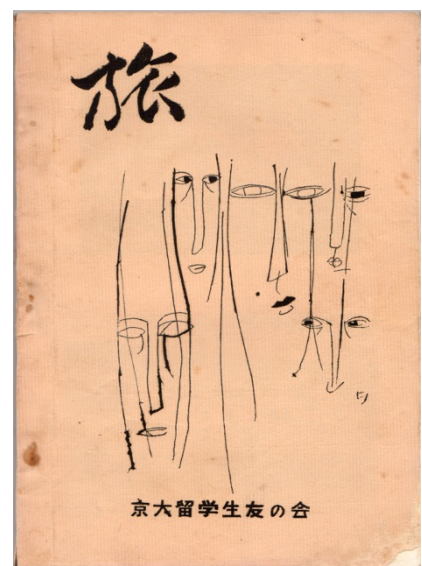 旅
京大留学生友の会